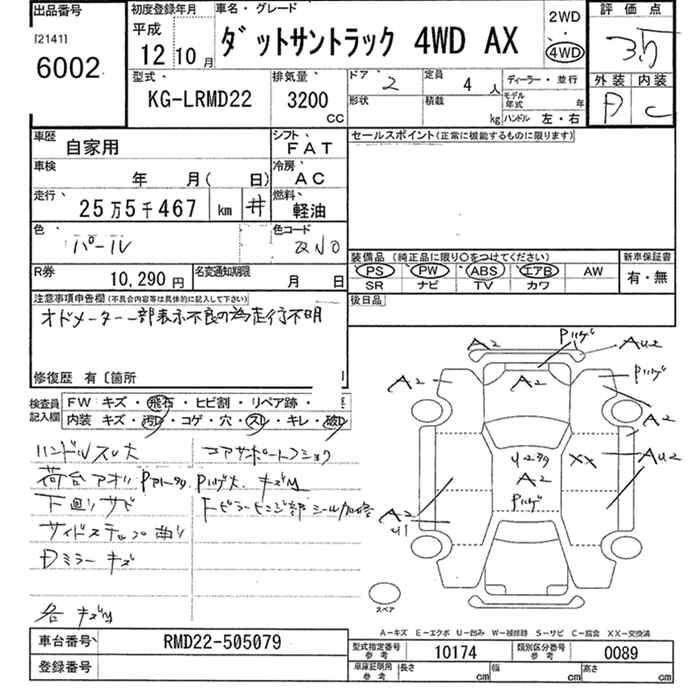 出品番号
[2141]
6002
初度登録年月
平成
12年10月
車名・グレード
ダットサントラック 4WD AX
2WD
4WD
評価点
3.5
外装 内装
D C
型式
KG-LRMD22
排気量
3200
CC
ドア 2
定員 4 人
形状
積載 kg
ディーラー・並行
モデル年式 年
ハンドル 左・右
車歴 自家用
シフト FAT
車検 年 月( 日)
冷房 AC
走行 25万5千467 km #
燃料 軽油
色 パール
色コード
R券 10,290円
名変通知期限 月 日
セールスポイント(正常に機能するものに限ります)
装備品(純正品に限り○をつけてください)
PS PW ABS エアB AW
SR ナビ TV カワ
新車保証書
有・無
後日品
注意事項申告欄(不具合内容等は具体的に記入して下さい)
オドメーター一部表示不良の為走行不明
修復歴 有〔箇所
検査員記入欄
FW キズ・飛石・ヒビ割・リペア跡・
内装 キズ・汚れ・コゲ・穴・スレ・キレ・破れ
ハンドルスレ大
コアサポートフショク
荷台アオリ Pハゲ大 キズ凹
下廻りサビ
サイドステップ曲り
Dミラーキズ
各キズ凹
A2
Pハゲ
AU2
A2
A2
Pハゲ
A2
XX
AU2
A2
Pハゲ
A2
U1
スペア
A-キズ E-エクボ U-凹み W-補修跡 S-サビ C-腐食 XX-交換済
車台番号 RMD22-505079
登録番号
型式指定番号 参考 10174
類別区分番号 参考 0089
車庫証明用 参考 長さ cm 幅 cm 高さ cm